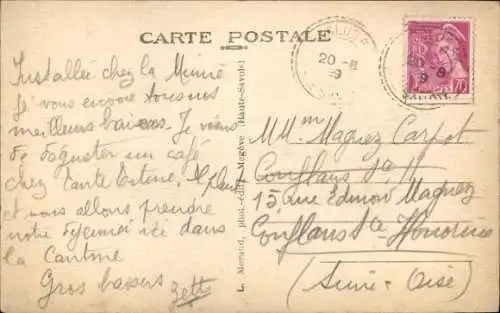 CARTE POSTALE
Installée chez la Mimie
je vous envoie tous nos
meilleurs baisers. Je viens
de déguster un café
chez Tante Titine, il pleut
et nous allons prendre
notre déjeuner ici dans
la
Gros baisers
L. Morand, phot.-édit., Megève (Haute-Savoie)
20 -8
9
20 8
9
70
M Mme Magnez
Conflans Ste H
15 rue Edmon Magnez
Conflans Ste Honorine
(Seine-Oise)